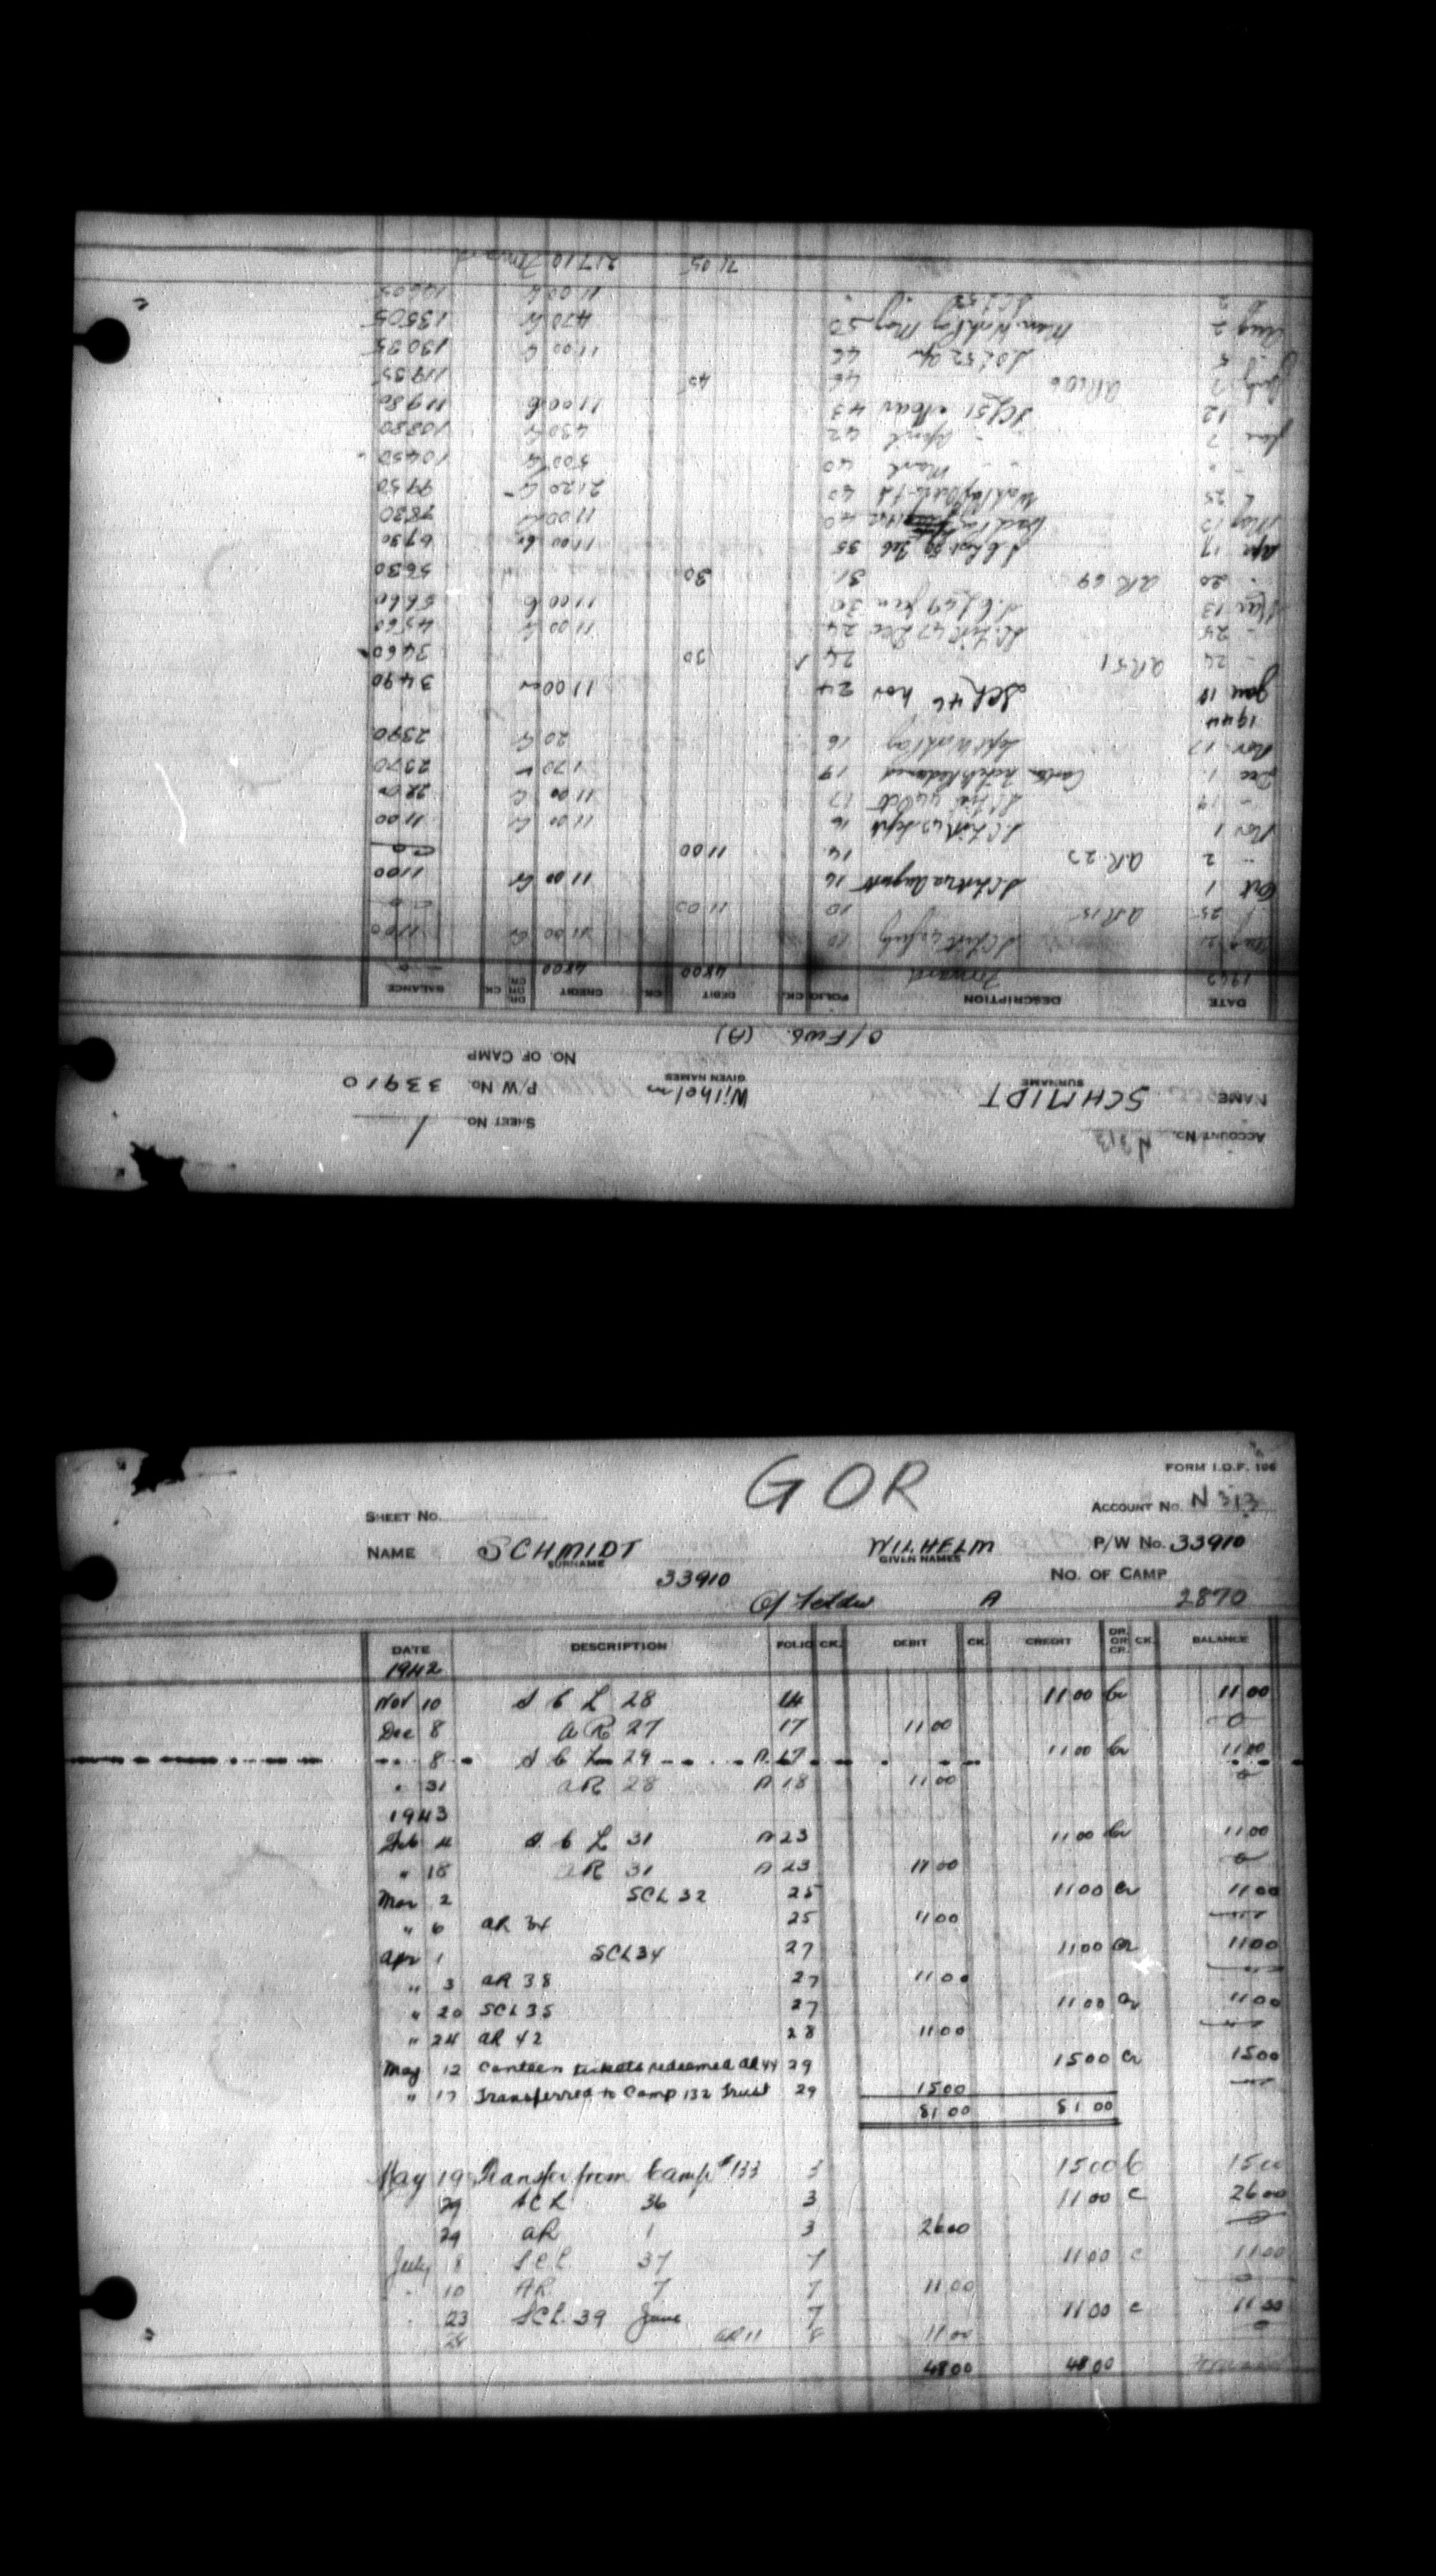 ACCOUNT No. N 313
SHEET No. 1
NAME SCHMIDT Wilhelm P/W No. 33910
SURNAME GIVEN NAMES
O/Fwb. (A) NO. OF CAMP
DATE DESCRIPTION FOLIO CK. DEBIT CK. CREDIT DR. OR CR. CK. BALANCE
1943 Forward 4800 4800 0
Aug 21 July 10 1100 Cr 1100
25 AR 15 10 1100 0
Oct 1 August 16 1100 Cr 1100
" 2 AR. 23 14 1100 0
Nov 1 Sept 16 1100 Cr 1100
" 19 Oct 17 1100 C 2200
Dec 1 Redeemed 19 170 2370
Nov 17 Sept 16 20 Cr 2390
1944
Jan 18 SCL 46 Nov 24 1100 cr 3490
" 24 AR 51 24 30 3460
" 25 47 Dec 24 1100 Cr 4560
Mar 13 SCL 49 Jan 30 1100 Cr 5660
" 20 AR 69 31 30 5630
Apr 17 50 Feb 35 1100 Cr 6730
May 15 40 1100 Cr 7830
" 25 40 2120 Cr 9950
" " " " March 40 500 Cr 10450
June 7 " " April 42 430 Cr 10880
12 SCL 51 Mar 43 1100 Cr 11980
July 7 46 45 11935
5 SCL 52 Apr 46 1100 C 13035
Aug 2 May 50 470 Cr 13505
2 SCL 53 " 1100 Cr 14605
7105 21710 Forward
GOR
FORM I.O.F. 106
SHEET No. ACCOUNT No. N 313
NAME SCHMIDT WILHELM P/W No. 33910
SURNAME GIVEN NAMES
33910 NO. OF CAMP
O/ A 2870
DATE DESCRIPTION FOLIO CK. DEBIT CK. CREDIT DR. OR CR. CK. BALANCE
1942
Nov 10 S C L 28 14 1100 Cr 1100
Dec 8 AR 27 17 1100 0
" 8 S C L 29 A 17 1100 Cr 1100
" 31 AR 28 A 18 1100 0
1943
Feb 4 S C L 31 A 23 1100 Cr 1100
" 18 AR 31 A 23 1100 0
Mar 2 SCL 32 25 1100 Cr 1100
" 6 AR 34 25 1100
Apr 1 SCL 34 27 1100 Cr 1100
" 3 AR 38 27 1100
" 20 SCL 35 27 1100 Cr 1100
" 24 AR 42 28 1100
May 12 Canteen tickets redeemed AR 44 29 1500 Cr 1500
" 17 Transferred to Camp 132 Trust 29 1500
8100 8100
May 19 Transfer from Camp #133 3 1500 C 1500
29 SCL 36 3 1100 C 2600
29 AR 1 3 2600 0
July 8 SCL 37 7 1100 C 1100
" 10 AR 7 7 1100 0
" 23 SCL 39 June 7 1100 C 1100
28 AR 11 8 1100 0
4800 4800 Forward